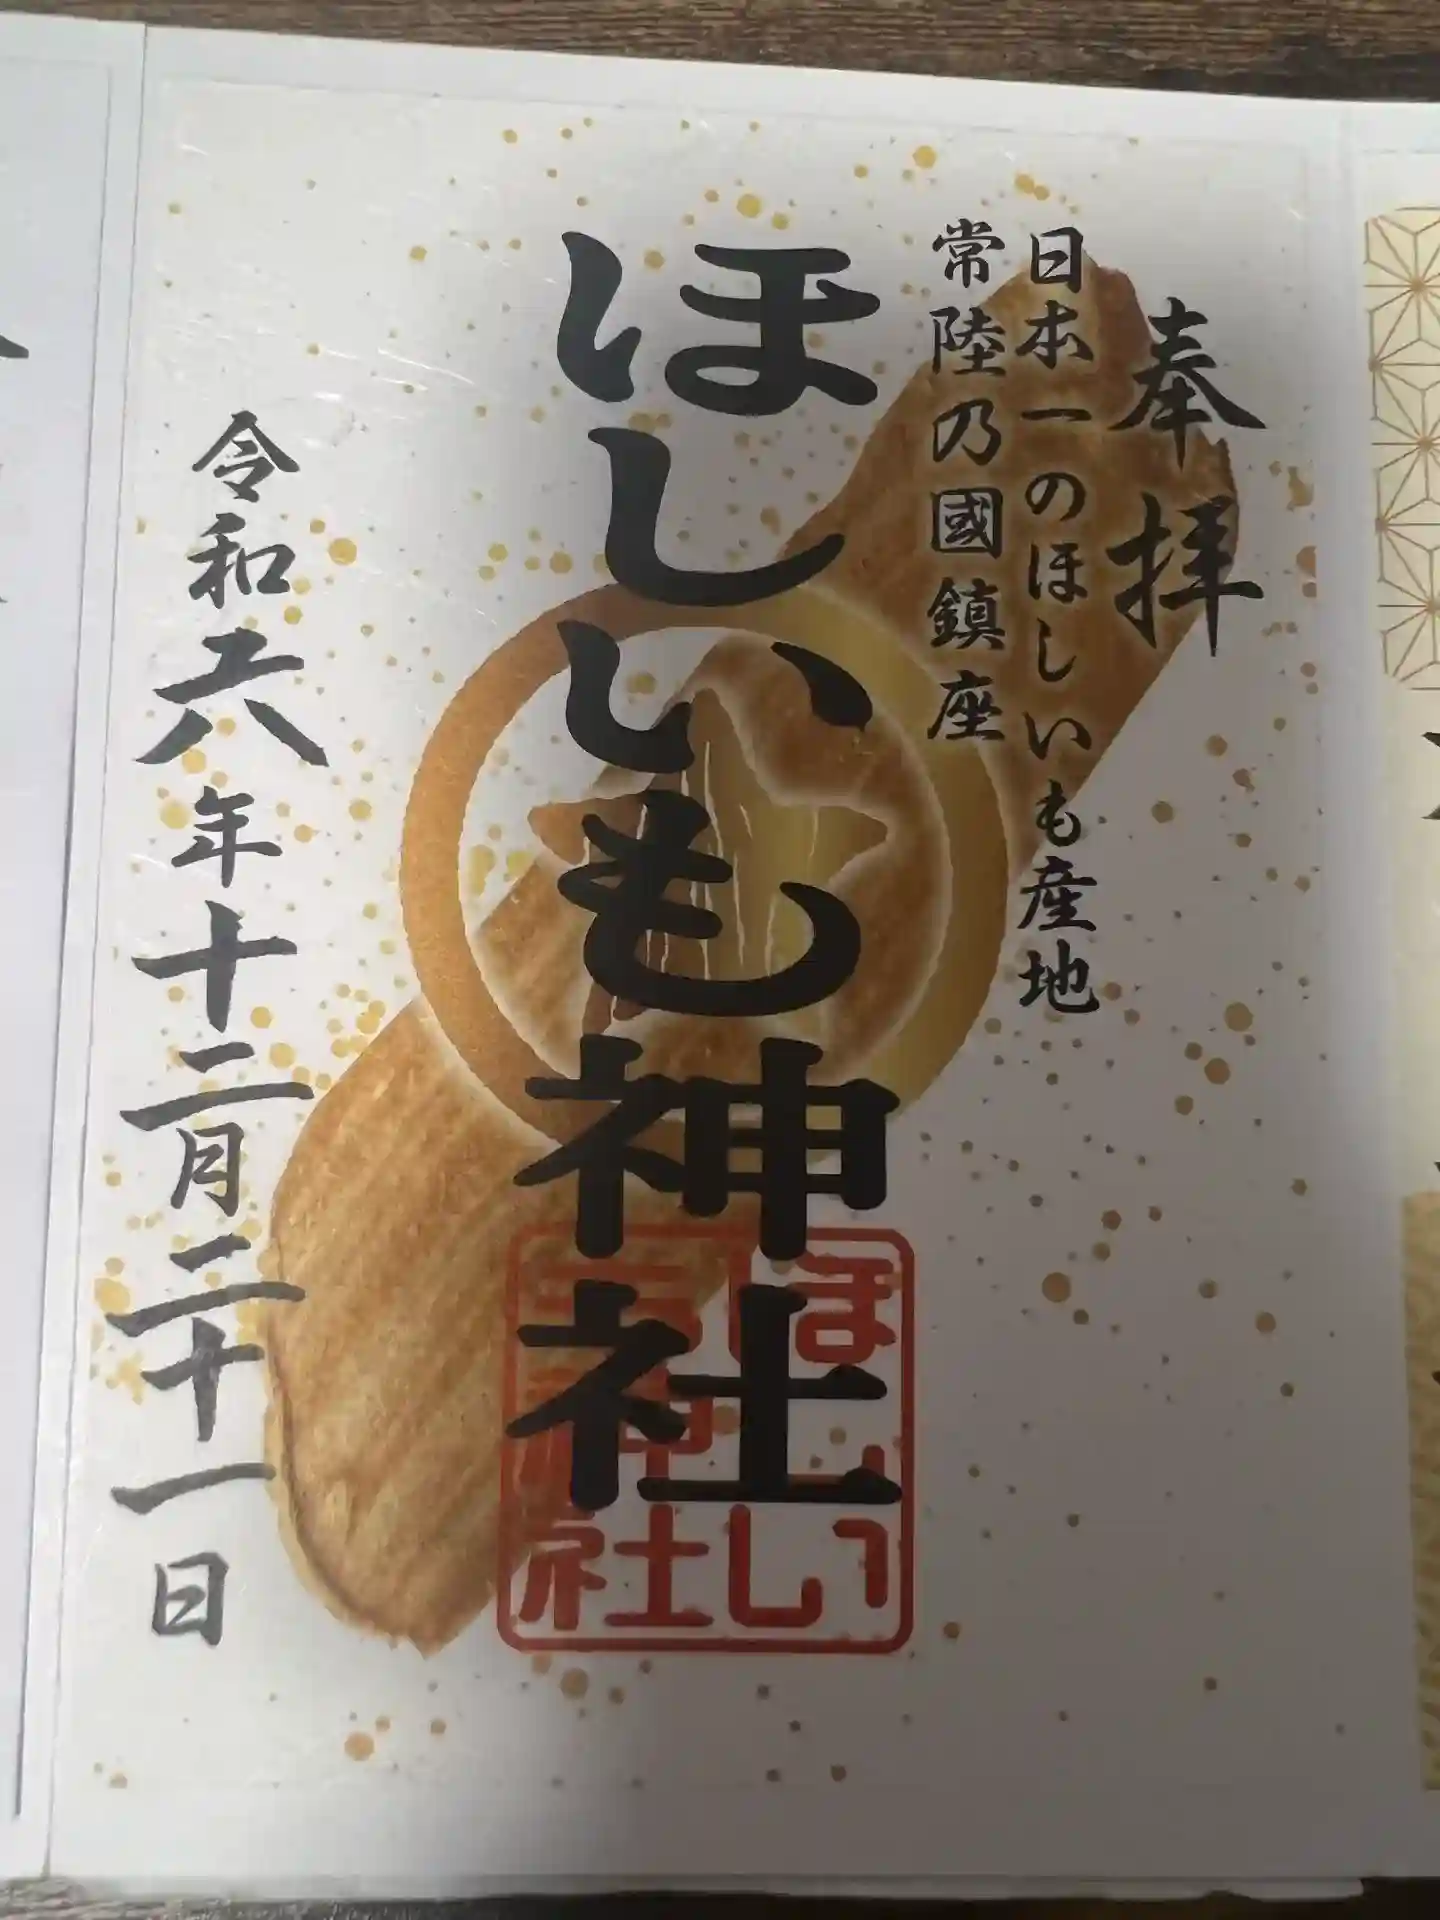 奉拝
日本一のほしいも産地
常陸乃國鎮座
ほしいも神社
令和六年十二月二十一日
ほしい
も神社